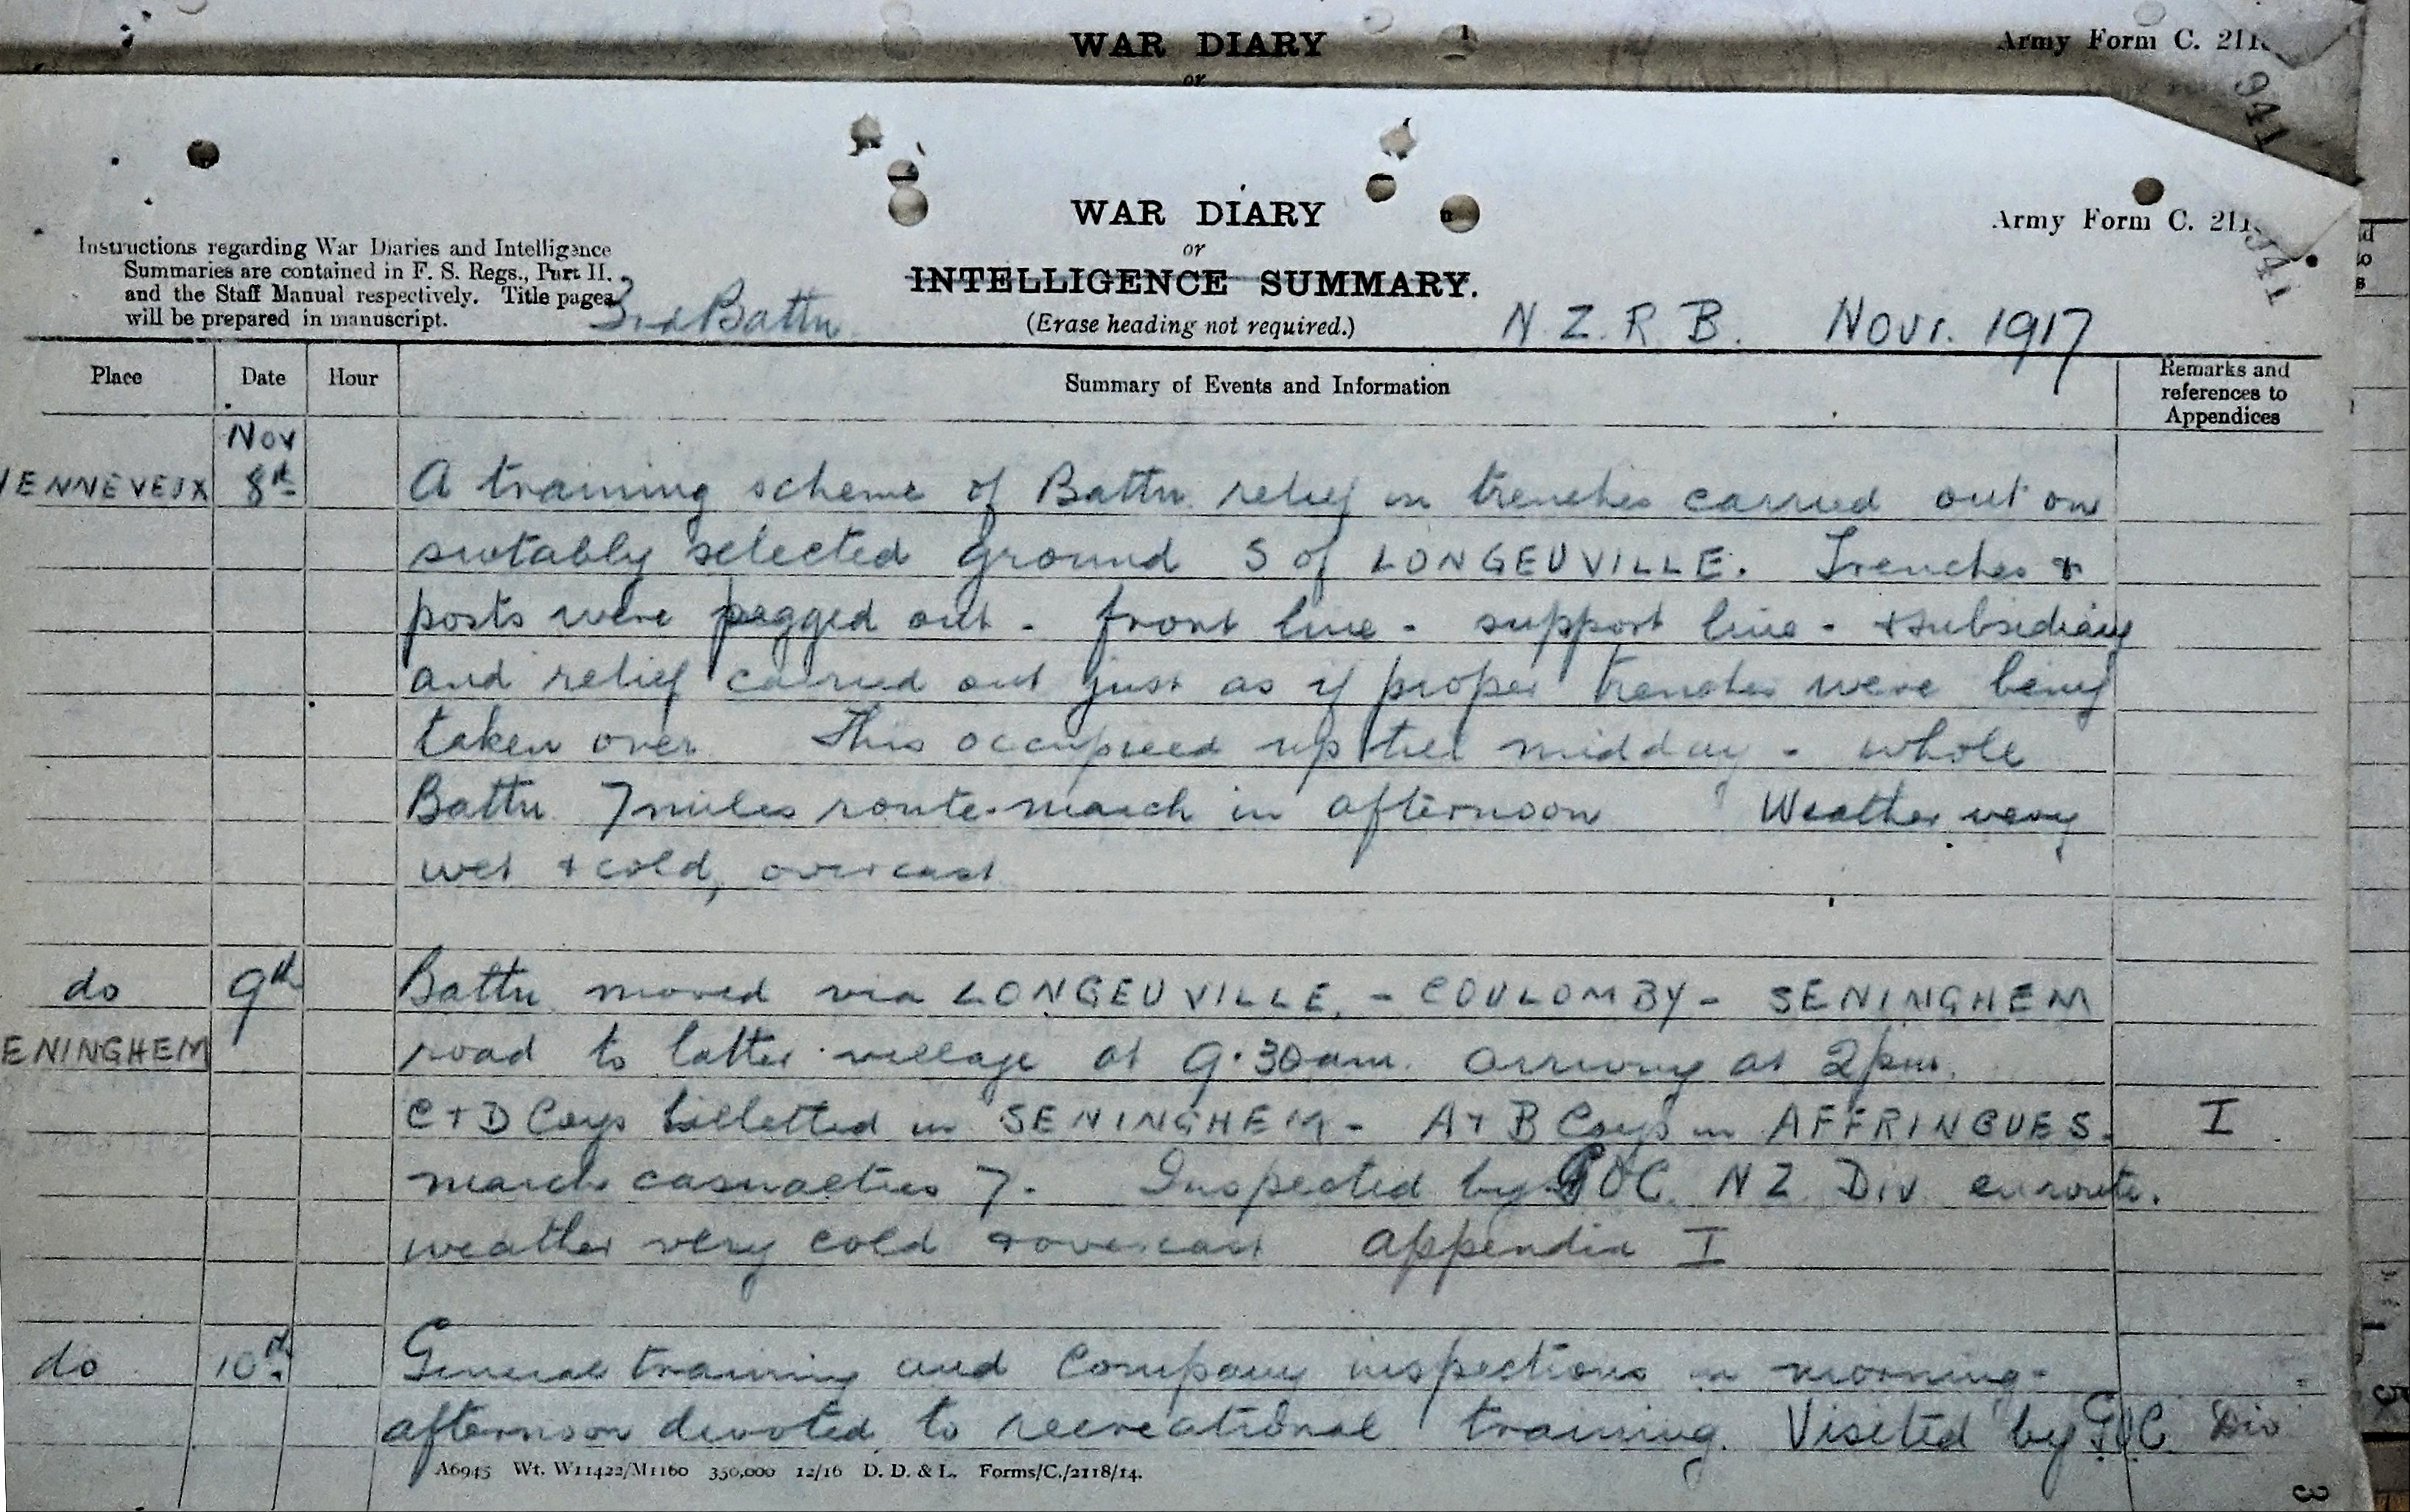 WAR DIARY
Army Form C. 211
or
941
WAR DIARY
Army Form C. 211
or
941
INTELLIGENCE SUMMARY.
(Erase heading not required.)
Instructions regarding War Diaries and Intelligence
Summaries are contained in F. S. Regs., Part II.
and the Staff Manual respectively. Title pages
will be prepared in manuscript.
3rd Battn N. Z. R. B. Novr. 1917
Place Date Hour Summary of Events and Information Remarks and
references to
Appendices
Nov
ENNEVEUX 8th A training scheme of Battn relief in trenches carried out on
suitably selected ground S of LONGEUVILLE. Trenches &
posts were pegged out - front line - support line - & subsidiary
and relief carried out just as if proper trenches were being
taken over This occupied up till midday - whole
Battn 7 miles route-march in afternoon Weather very
wet & cold, overcast
do 9th Battn moved via LONGEUVILLE, - COULOMBY - SENINGHEM
ENINGHEM road to latter village at 9.30am. arriving at 2pm.
C & D Coys billetted in SENINGHEM - A & B Coys in AFFRINGUES. I
march casualties 7. Inspected by GOC. NZ Div enroute.
weather very cold & overcast appendix I
do 10th. General training and Company inspections in morning-
afternoon devoted to recreational training. Visited by GOC. Div
A6945 Wt. W11422/M1160 350,000 12/16 D. D. & L. Forms/C./2118/14.
3